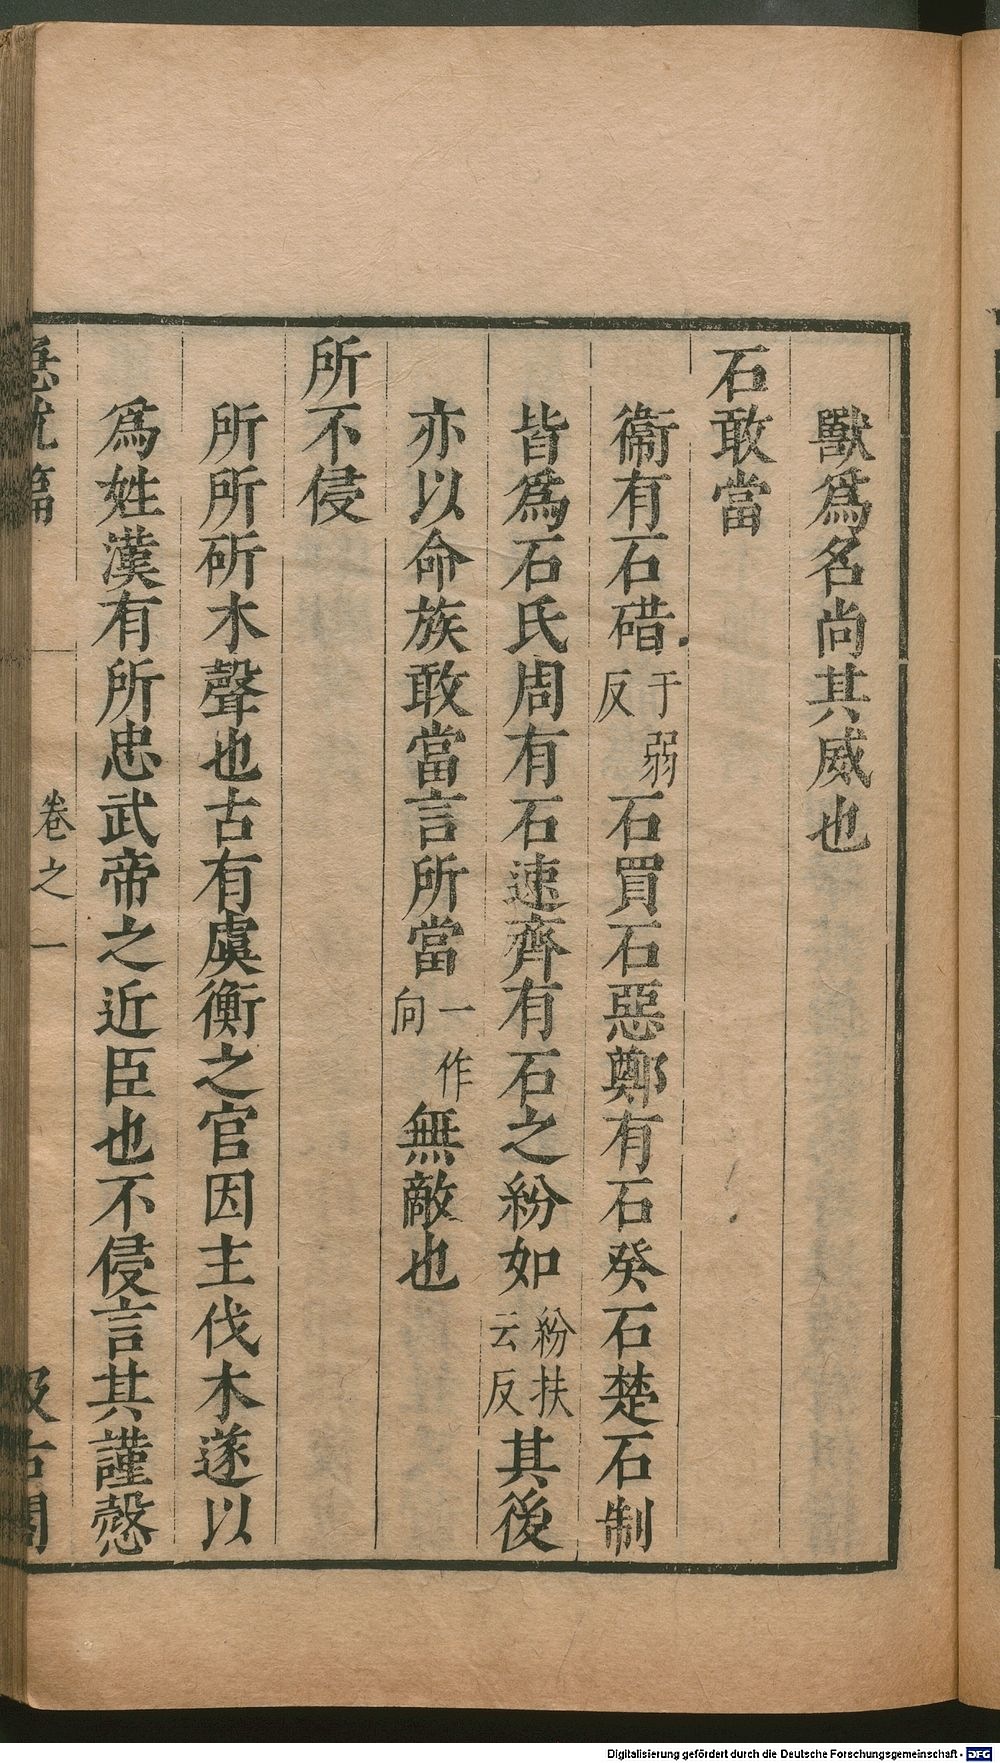 獸爲名尚其威也
石敢當
衞有石碏于弱反石買石惡鄭有石癸石楚石制
皆爲石氏周有石速齊有石之紛如紛扶云反其後
亦以命族敢當言所當一作向無敵也
所不侵
所所斫木聲也古有虞衡之官因主伐木遂以
爲姓漢有所忠武帝之近臣也不侵言其謹慤
急就篇
卷之一
汲古閣
Digitalisierung gefördert durch die Deutsche Forschungsgemeinschaft - DFG